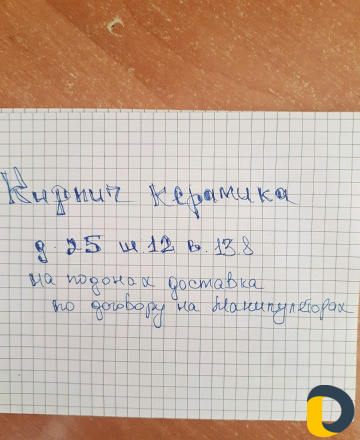 Кирпич керамика
д. 25 ш. 12 в. 13.8
на подонах доставка
по договору на манипуляторах